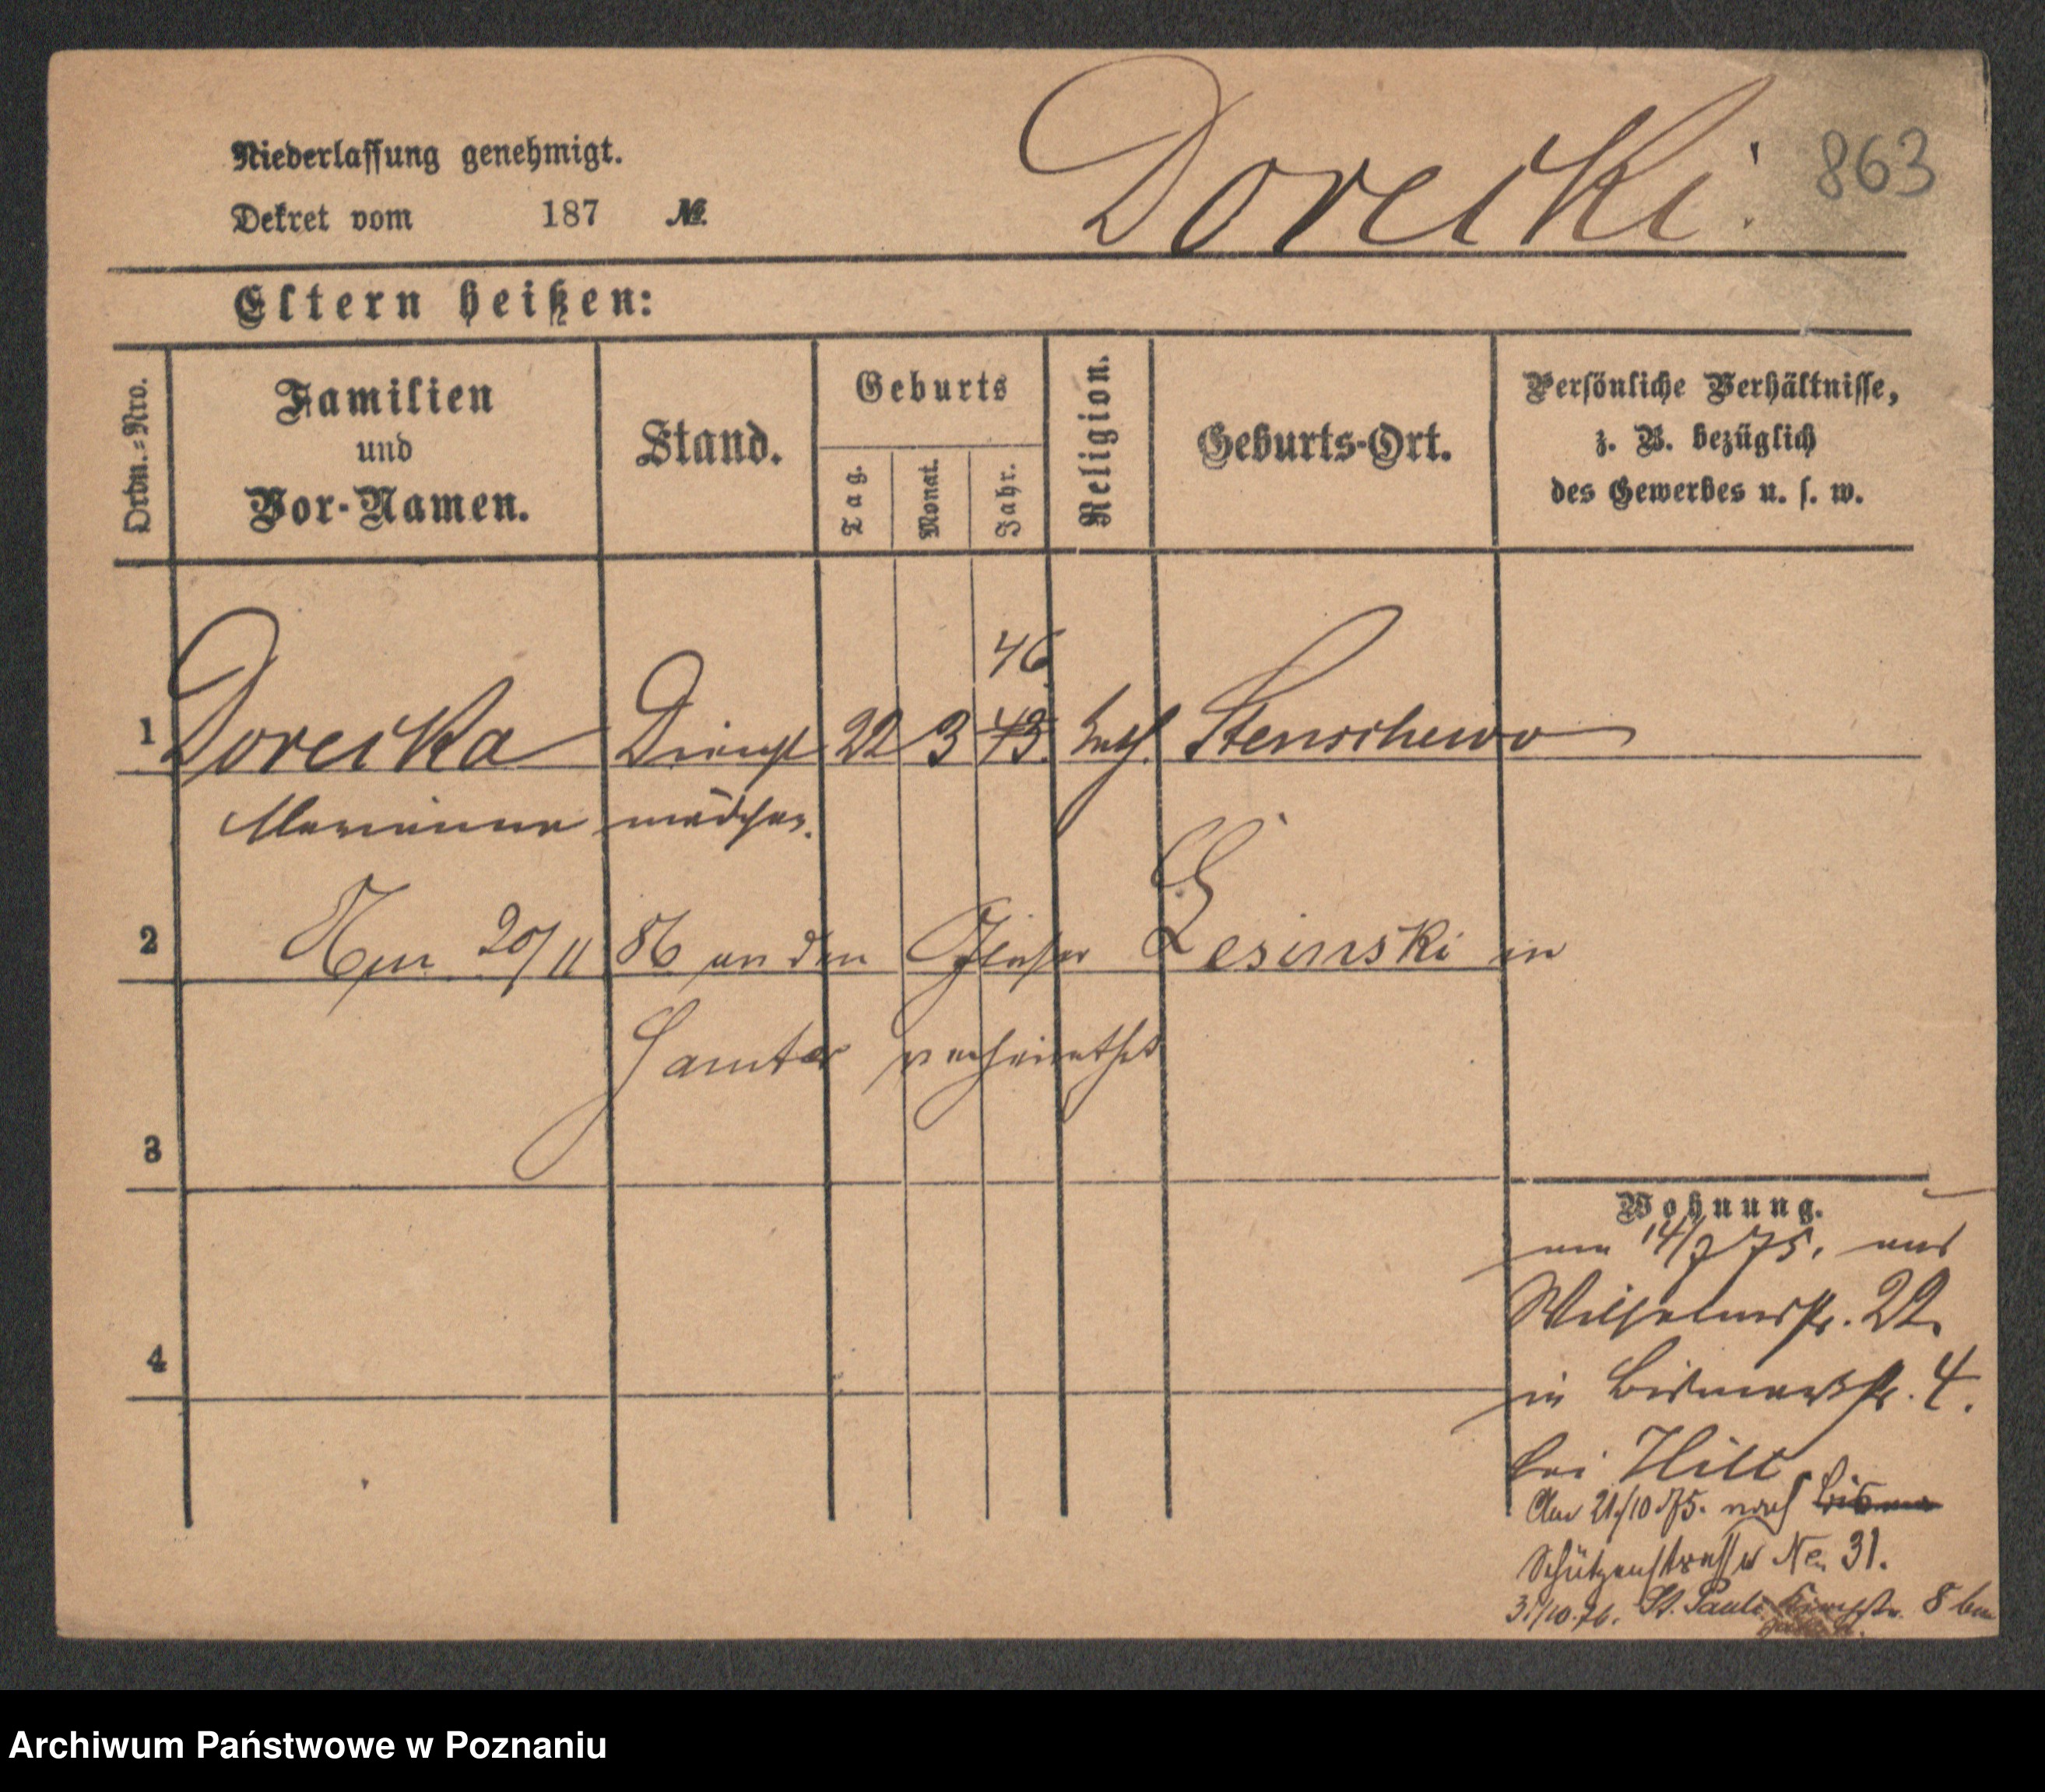 Niederlassung genehmigt.
Dekret vom 187 №
Dorecki.
863
Eltern heißen:
Ordn.=Nro.
Familien
und
Vor-Namen.
Stand.
Geburts
Tag.
Monat.
Jahr.
Religion.
Geburts-Ort.
Persönliche Verhältnisse,
z. B. bezüglich
des Gewerbes u. s. w.
46
1 Dorecka Dienst 22 3 43. kath. Stenschewo
Marianna mädchen.
2 20/11 86 an den Lesinski in
Samter verheirathet
3
Wohnung.
am 14/7 75. aus
Wilhelmsstr. 22.
4
in Bismarkstr. 4.
bei Hill
Am 21/10 75. nach Bisma
Schützenstrasse No 31.
31/10.76. St. Pauli Kirchstr. 8 bei
Archiwum Państwowe w Poznaniu